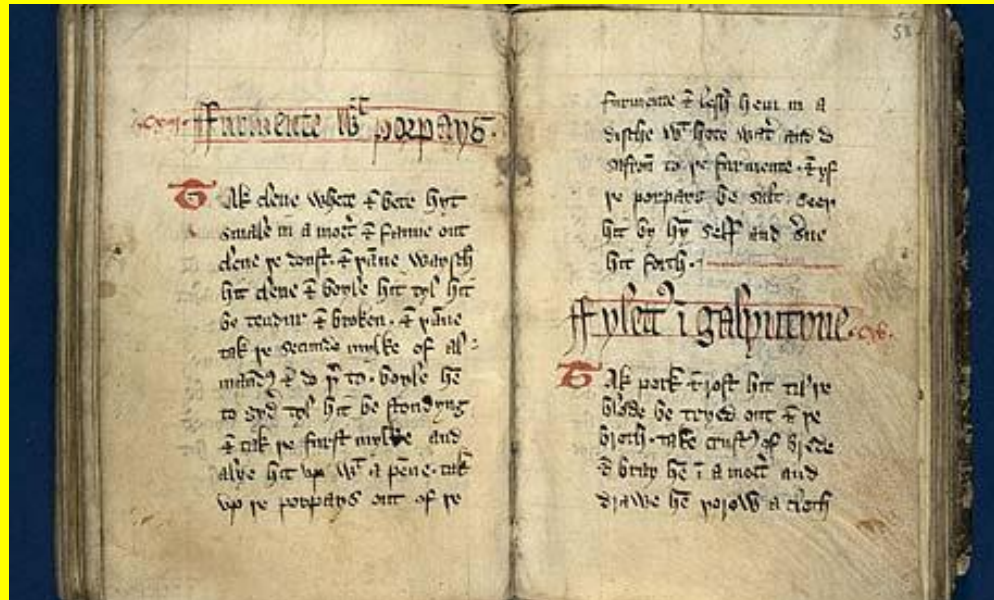 .cxvi. Furmente wt porpays.
Tak clene whete & bete hyt
smale in a mort & fanne out
clene þe doust. & þane waysch
hit clene & boyle hit tyl hit
be tendur & broken. & þane
tak þe secunde mylke of al
mandes & do þ to. boyle hem
to gyd tyl hit be stondyng
& tak þe furst mylke and
alye hit vp wt a penne. tak
vp þe porpays out of þe
58
furmente & lesh hem in a
disshe wt hote wat and do
safron to þe furmente. & yf
þe porpays be salt. seep
hit by hym self and sue
hit forth.
Fylett i galyntyne.
Tak pork & rost hit til þe
blode be tryed out & þe
broth. take crusts of brede
& bray hem i a mort and
drawe hem þorow a cloth